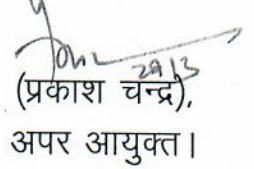 29/3
(प्रकाश चन्द्र),
अपर आयुक्त।